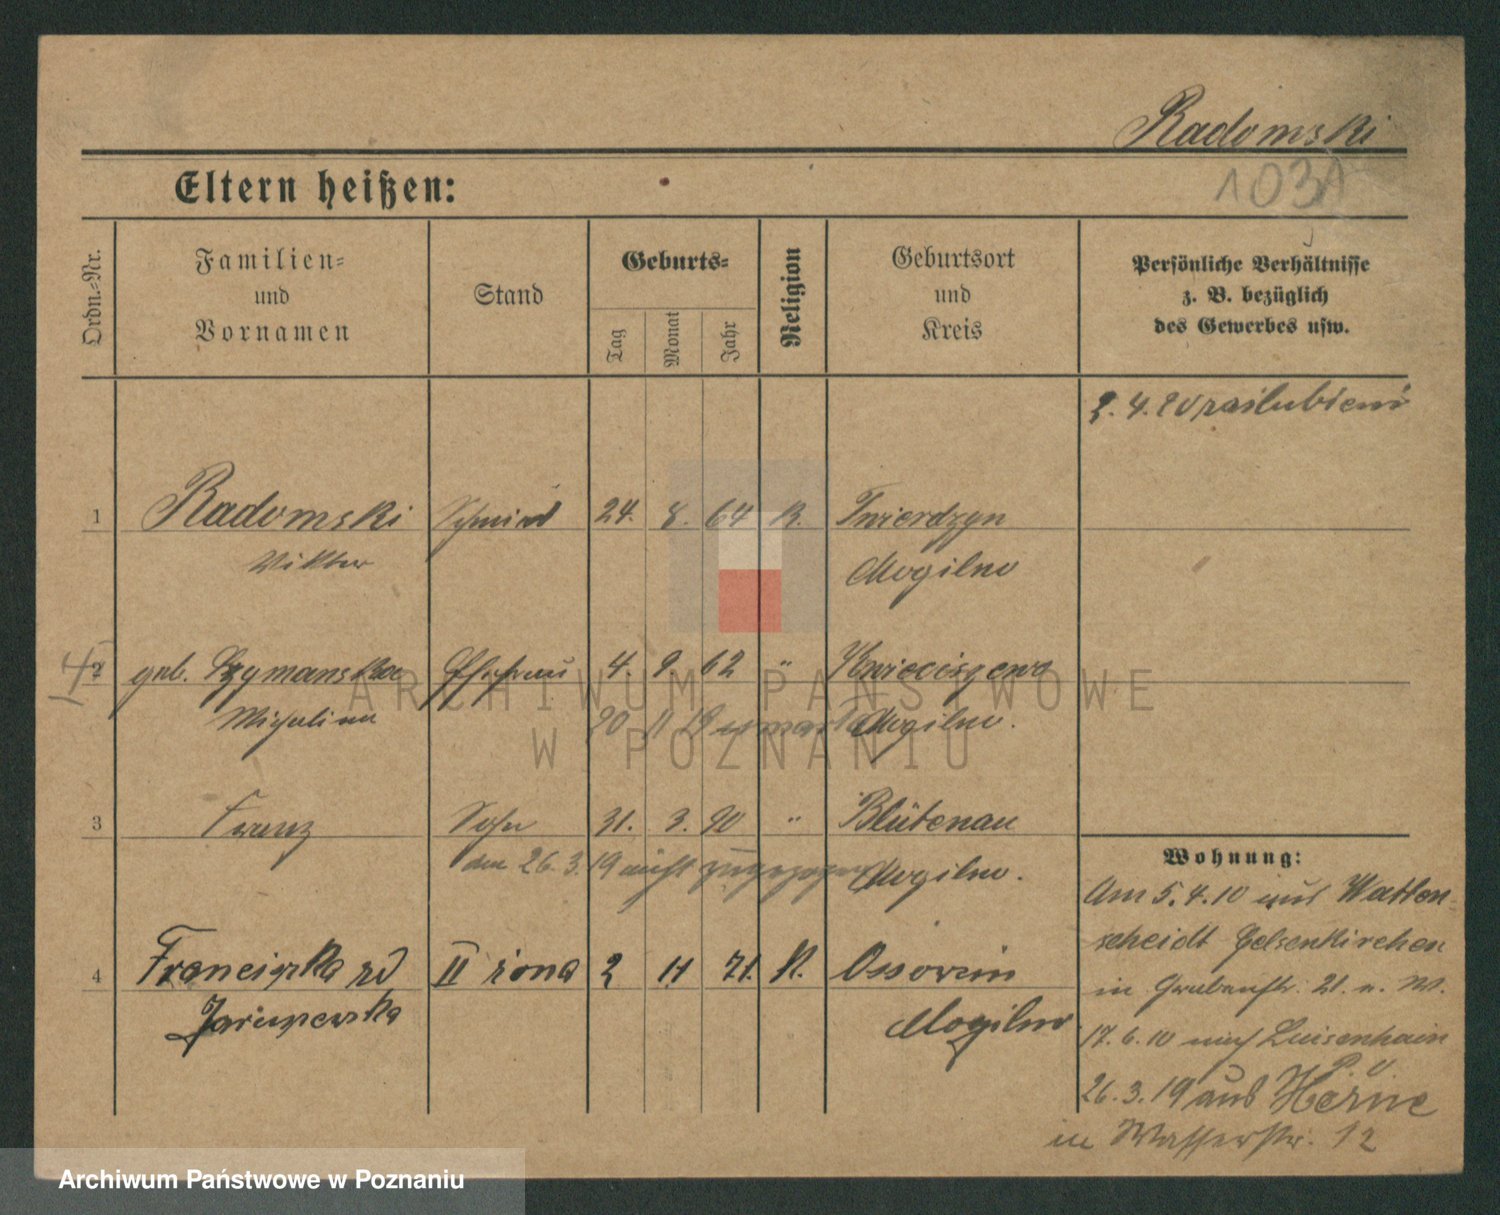 Radomski
1031
Eltern heißen:
Ordn.-Nr.
Familien-
und
Vornamen
Stand
Geburts-
Tag
Monat
Jahr
Religion
Geburtsort
und
Kreis
Persönliche Verhältnisse
z. B. bezüglich
des Gewerbes usw.
2. 4. 20 zaślubieni
1 Radomski Schmied 24. 8. 64 K. Twierdzyn
Viktor Mogilno
2 geb. Szymanska Ehefrau 4. 9. 62 " Kwieciszewo
Michalina 20 11 19 umarła Mogilno.
3 Franz Sohn 31. 3. 90 " Blütenau
den 26. 3. 19 nicht zugezogen Mogilno.
4 Franciszka zd II żona 2 11 71. K. Ossowiin
Mogilno
Wohnung:
Am 5. 4. 10 aus Watten-
scheidt Gelsenkirchen
in Grabenstr. 21. n. W.
17. 6. 10 nach Luisenhain
P. O
26. 3. 19 aus Herne
in Wasserstr. 12
ARCHIWUM PAŃSTWOWE
W POZNANIU
Archiwum Państwowe w Poznaniu